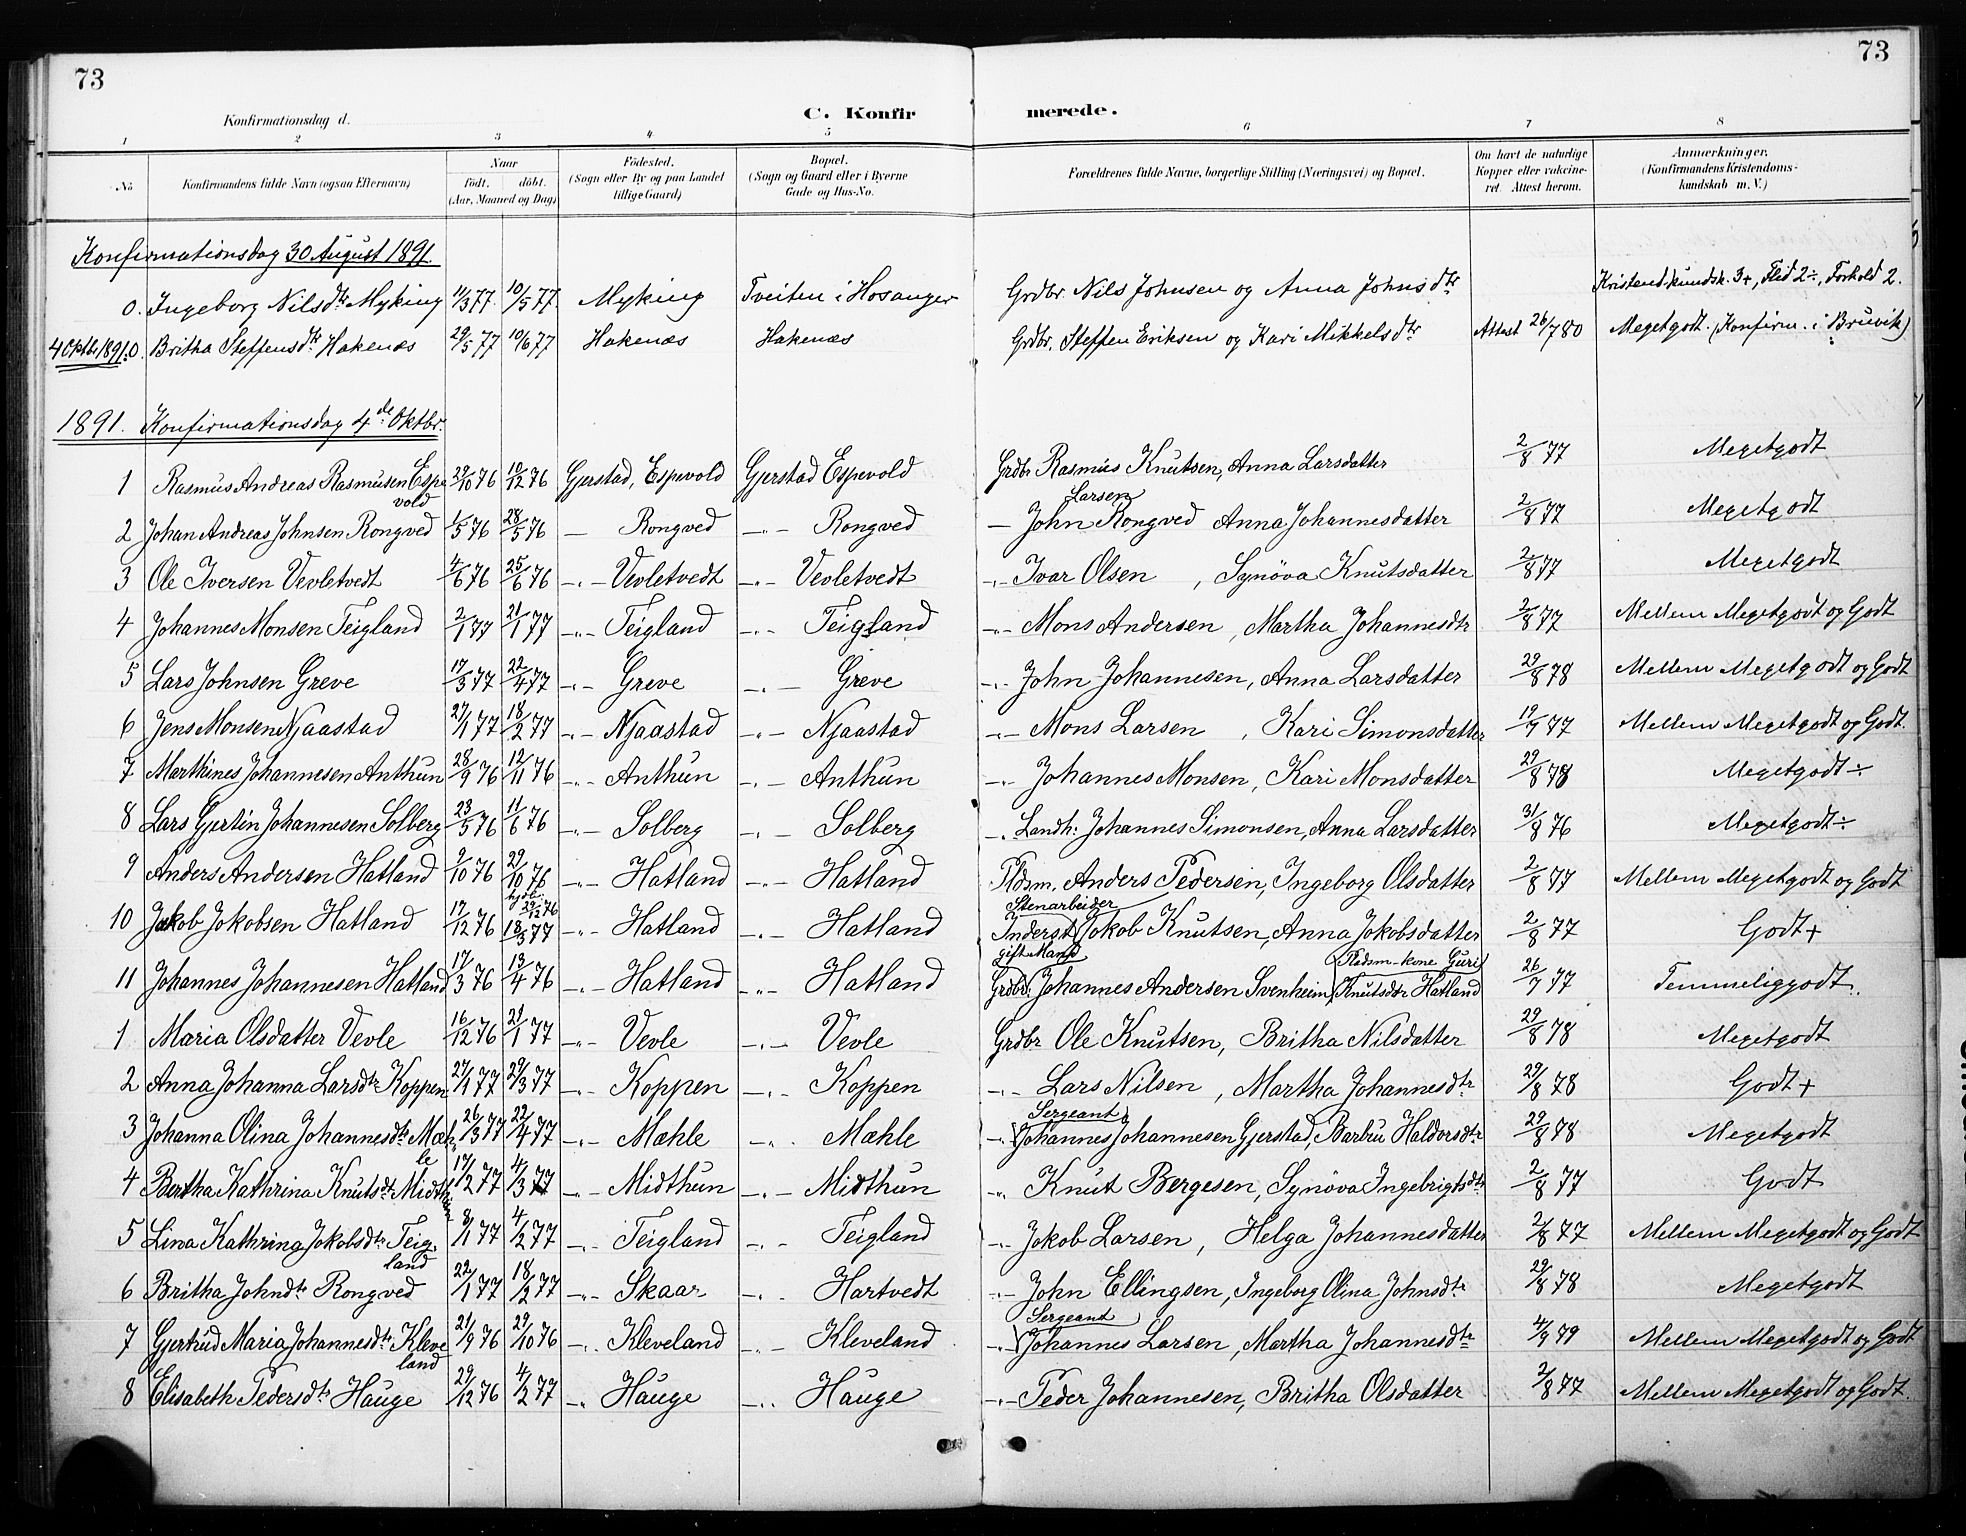 73
73
Konfirmationsdag d.
C. Konfir
merede.
1 2 3 4 5 6 7 8
No
Konfirmandens fulde Navn (ogsaa Efternavn)
Naar
födt. döbt.
(Aar, Maaned og Dag)
Födested.
(Sogn eller By og paa Landet
tillige Gaard)
Bopæl.
(Sogn og Gaard eller i Byerne
Gade og Hus-No.
Forældrenes fulde Navne, borgerlige Stilling (Næringsvei) og Bopæl.
Om havt de naturlige
Kopper eller vakcine-
ret. Attest herom.
Anmærkninger.
(Konfirmandens Kristendoms-
kundskab m. V.)
Konfirmationsdag 30 August 1891.
0. Ingeborg Nilsdtr Myking 11/3 77. 10/5 77. Myking Tveiten i Hosanger Grdbr. Nils Johnsen og Anna Johnsdtr Kristend.kundsk. 3+, Flid 2÷, Forhold 2.
4 Oktbr 1891. 0. Britha Steffensdtr Hakenæs 29/5 77 10/6 77 Hakenæs Hakenæs Grdbr. Steffen Eriksen og Kari Mikkelsdtr Attest 26/7 80 Megetgodt. (Konfirm. i Bruvik)
1891. Konfirmationsdag 4de Oktbr.
1 Rasmus Andreas Rasmusen Espevold 29/10 76 10/12 76 Gjerstad, Espevold Gjerstad Espevold Grdbr Rasmus Knutsen, Anna Larsdatter 2/8 77 Megetgodt
2 Johan Andreas Johnsen Rongved 1/5 76 28/5 76 — Rongved —"— Rongved — John Larsen Rongved Anna Johannesdatter 2/8 77 Megetgodt
3 Ole Iversen Vevletvedt 4/6 76 25/6 76 —"— Vevletvedt —"— Vevletvedt —"— Ivar Olsen, Synöva Knutsdatter 2/8 77 Megetgodt
4 Johannes Monsen Teigland 2/1 77 21/1 77 —"— Teigland —"— Teigland —"— Mons Andersen, Martha Johannesdtr 2/8 77 Mellem Megetgodt og Godt
5 Lars Johnsen Greve 17/3 77 22/4 77 —"— Greve —"— Greve —"— John Johannesen, Anna Larsdatter 29/8 78 Mellem Megetgodt og Godt
6 Jens Monsen Njaastad 27/1 77 18/2 77 —"— Njaastad —"— Njaastad —"— Mons Larsen, Kari Simonsdatter 19/9 77 Mellem Megetgodt og Godt
7 Marthines Johannesen Anthun 28/9 76 12/11 76 —"— Anthun —"— Anthun —"— Johannes Monsen, Kari Monsdatter 29/8 78 Megetgodt ÷
8 Lars Gjertin Johannesen Solberg 23/5 76 11/6 76 —"— Solberg —"— Solberg —"— Landh: Johannes Simonsen, Anna Larsdatter 31/8 76 Megetgodt ÷
9 Anders Andersen Hatland 9/10 76 29/10 76 —"— Hatland —"— Hatland Pldsm. Anders Pedersen, Ingeborg Olsdatter 2/8 77 Mellem Megetgodt og Godt
10 Jakob Jokobsen Hatland 17/12 76 hjdbt. 29/12 76 18/3 77 —"— Hatland —"— Hatland Inderst Stenarbeider Jokob Knutsen, Anna Jokobsdatter 2/8 77 Godt +
11 Johannes Johannesen Hatland 17/3 76 13/4 76 —"— Hatland —"— Hatland gift Mand Grdbr. Johannes Andersen Svenheim, Pldsm-kone Guri Knutsdtr Hatland 26/7 77 Temmeliggodt.
1 Maria Olsdatter Vevle 16/12 76 21/1 77 —"— Vevle —"— Vevle Grdbr Ole Knutsen, Britha Nilsdatter 29/8 78 Megetgodt
2 Anna Johanna Larsdtr Koppen 27/1 77 29/3 77 —"— Koppen —"— Koppen —"— Lars Nilsen, Martha Johannesdtr 29/8 78 Godt +
3 Johanna Olina Johannesdtr Mæhle 26/3 77 22/4 77 —"— Mæhle —"— Mæhle —"— Sergeant Johannes Johannesen Gjerstad, Barbru Haldorsdtr 29/8 78 Megetgodt
4 Bertha Kathrina Knutsdtr Midthun 17/2 77 4/3 77 —"— Midthun —"— Midthun —"— Knut Bergesen, Synöva Ingebrigtsdtr 2/8 77 Godt
5 Lina Kathrina Jokobsdtr Teigland 8/1 77 4/2 77 —"— Teigland —"— Teigland —"— Jokob Larsen, Helga Johannesdatter 2/8 77 Mellem Megetgodt og Godt
6 Britha Johndtr Rongved 22/1 77 18/2 77 —"— Skaar —"— Hartvedt —"— John Ellingsen, Ingeborg Olina Johnsdtr 29/8 78 Megetgodt
7 Gjertrud Maria Johannesdtr Kleveland 21/9 76 29/10 76 —"— Kleveland —"— Kleveland —"— Sergeant Johannes Larsen, Martha Johannesdtr 4/9 79 Mellem Megetgodt og Godt
8 Elisabeth Pedersdtr Hauge 29/12 76 4/2 77 —"— Hauge —"— Hauge —"— Peder Johannesen, Britha Olsdatter 2/8 77 Mellem Megetgodt og Godt.